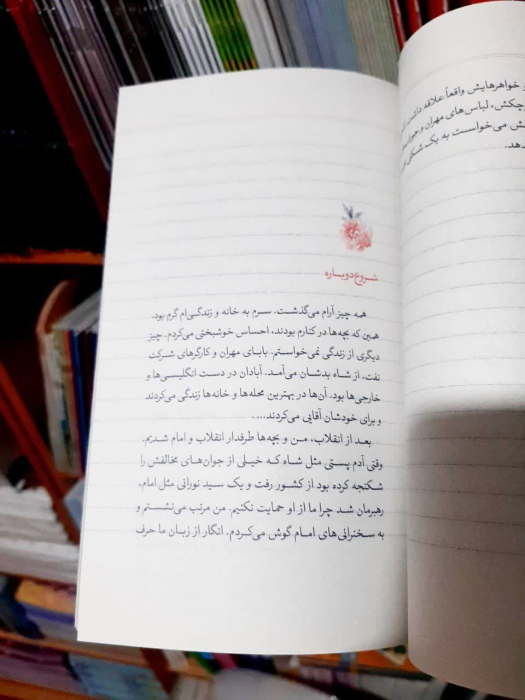 و خواهرهایش واقعاً علاقه داشت.
لباس‌های مهران و
می‌خواست به یک شکلی
دهد.
شروع دوباره
همه چیز آرام می‌گذشت. سرم به خانه و زندگی‌ام گرم بود.
همین که بچه‌ها در کنارم بودند، احساس خوشبختی می‌کردم. چیز
دیگری از زندگی نمی‌خواستم. بابای مهران و کارگرهای شرکت
نفت، از شاه بدشان می‌آمد. آبادان در دست انگلیسی‌ها و
خارجی‌ها بود. آن‌ها در بهترین محله‌ها و خانه‌ها زندگی می‌کردند
و برای خودشان آقایی می‌کردند....
بعد از انقلاب، من و بچه‌ها طرفدار انقلاب و امام شدیم.
وقتی آدم پستی مثل شاه که خیلی از جوان‌های مخالفش را
شکنجه کرده بود از کشور رفت و یک سید نورانی مثل امام،
رهبرمان شد چرا ما از او حمایت نکنیم. من مرتب می‌نشستم و
به سخنرانی‌های امام گوش می‌کردم. انگار از زبان ما حرف